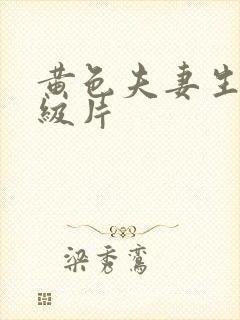 黄色夫妻生
级片
梁秀鸾